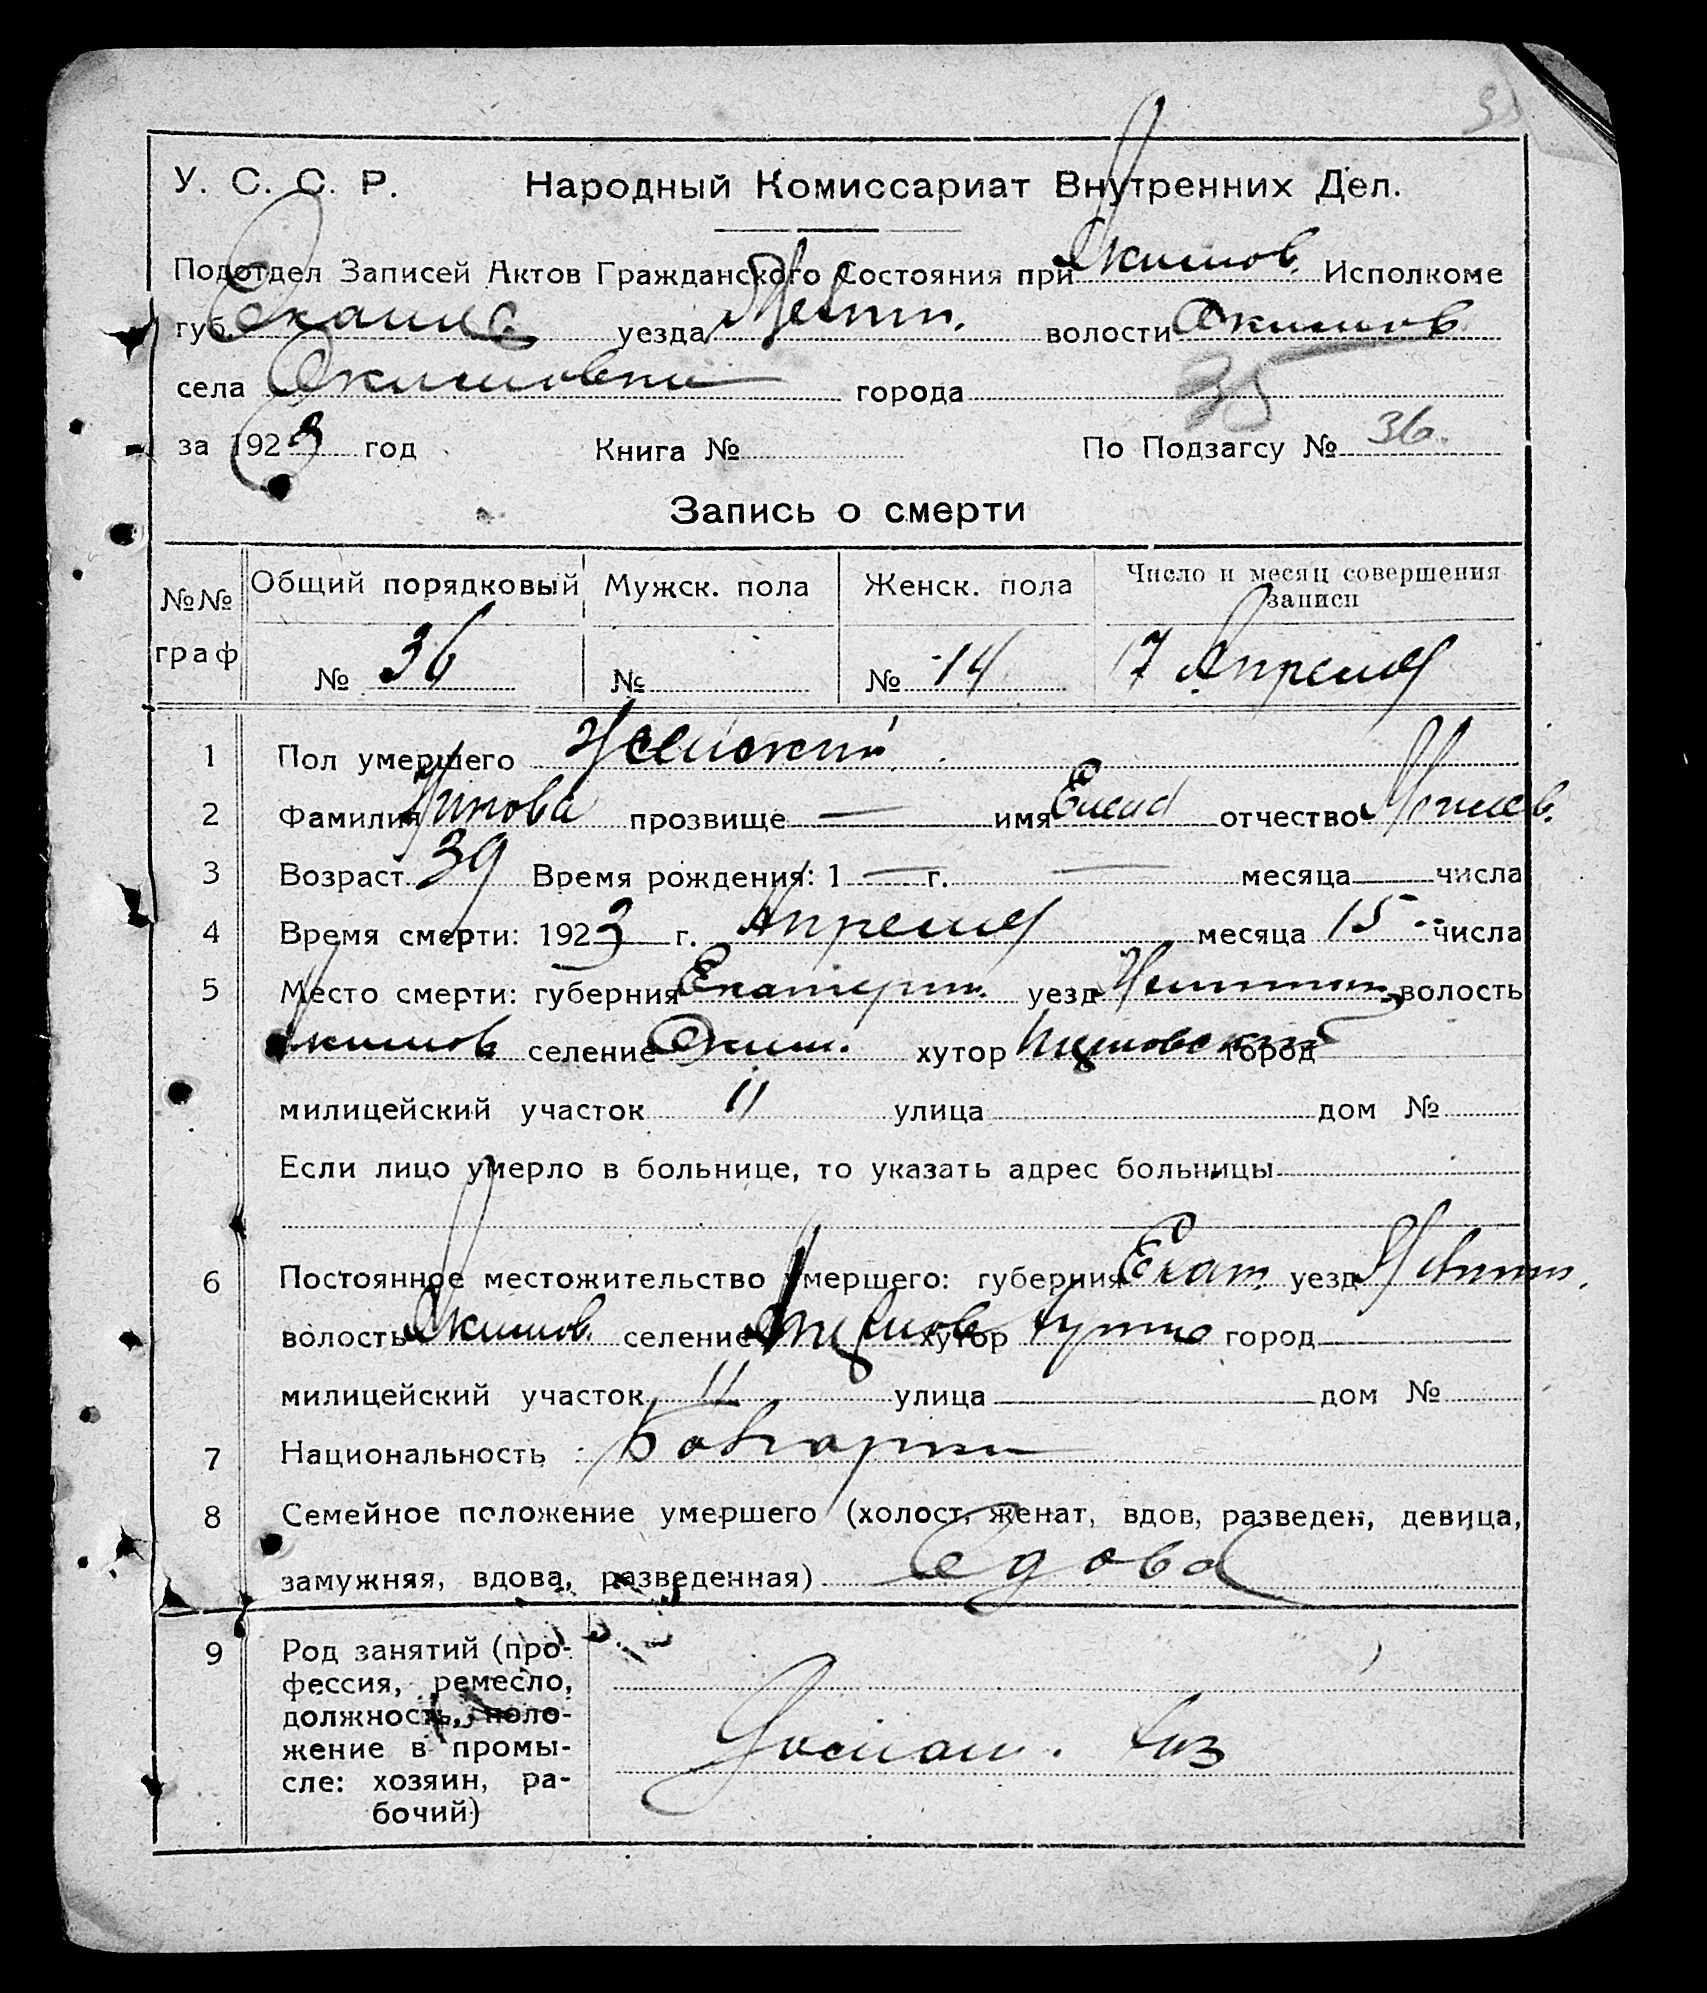 35
У. С. С. Р. Народный Комиссариат Внутренних Дел.
Подотдел Записей Актов Гражданского Состояния при Акимов. Исполкоме
губ. уезда Мелит. волости Акимов
села Акимовки города
35
за 1923 год Книга № По Подзагсу № 36.
Запись о смерти
№№ граф Общий порядковый Мужск. пола Женск. пола Число и месяц совершения записи
№ 36 № № 14 17 Апреля
1 Пол умершего Женский
2 Фамилия прозвище — имя Елена отчество
3 Возраст 39 Время рождения: 1 — г. — месяца — числа
4 Время смерти: 1923 г. Апреля месяца 15 числа
5 Место смерти: губерния Екатерин. уезд волость
Акимов селение Аким. хутор город
милицейский участок 11 улица дом №
Если лицо умерло в больнице, то указать адрес больницы
6 Постоянное местожительство умершего: губерния Екат. уезд Мелит.
волость Акимов. селение хутор город
милицейский участок 11 улица дом №
7 Национальность
8 Семейное положение умершего (холост, женат, вдов, разведен, девица,
замужняя, вдова, разведенная) вдова
9 Род занятий (про-
фессия, ремесло,
должность, поло-
жение в промы-
сле: хозяин, ра-
бочий)